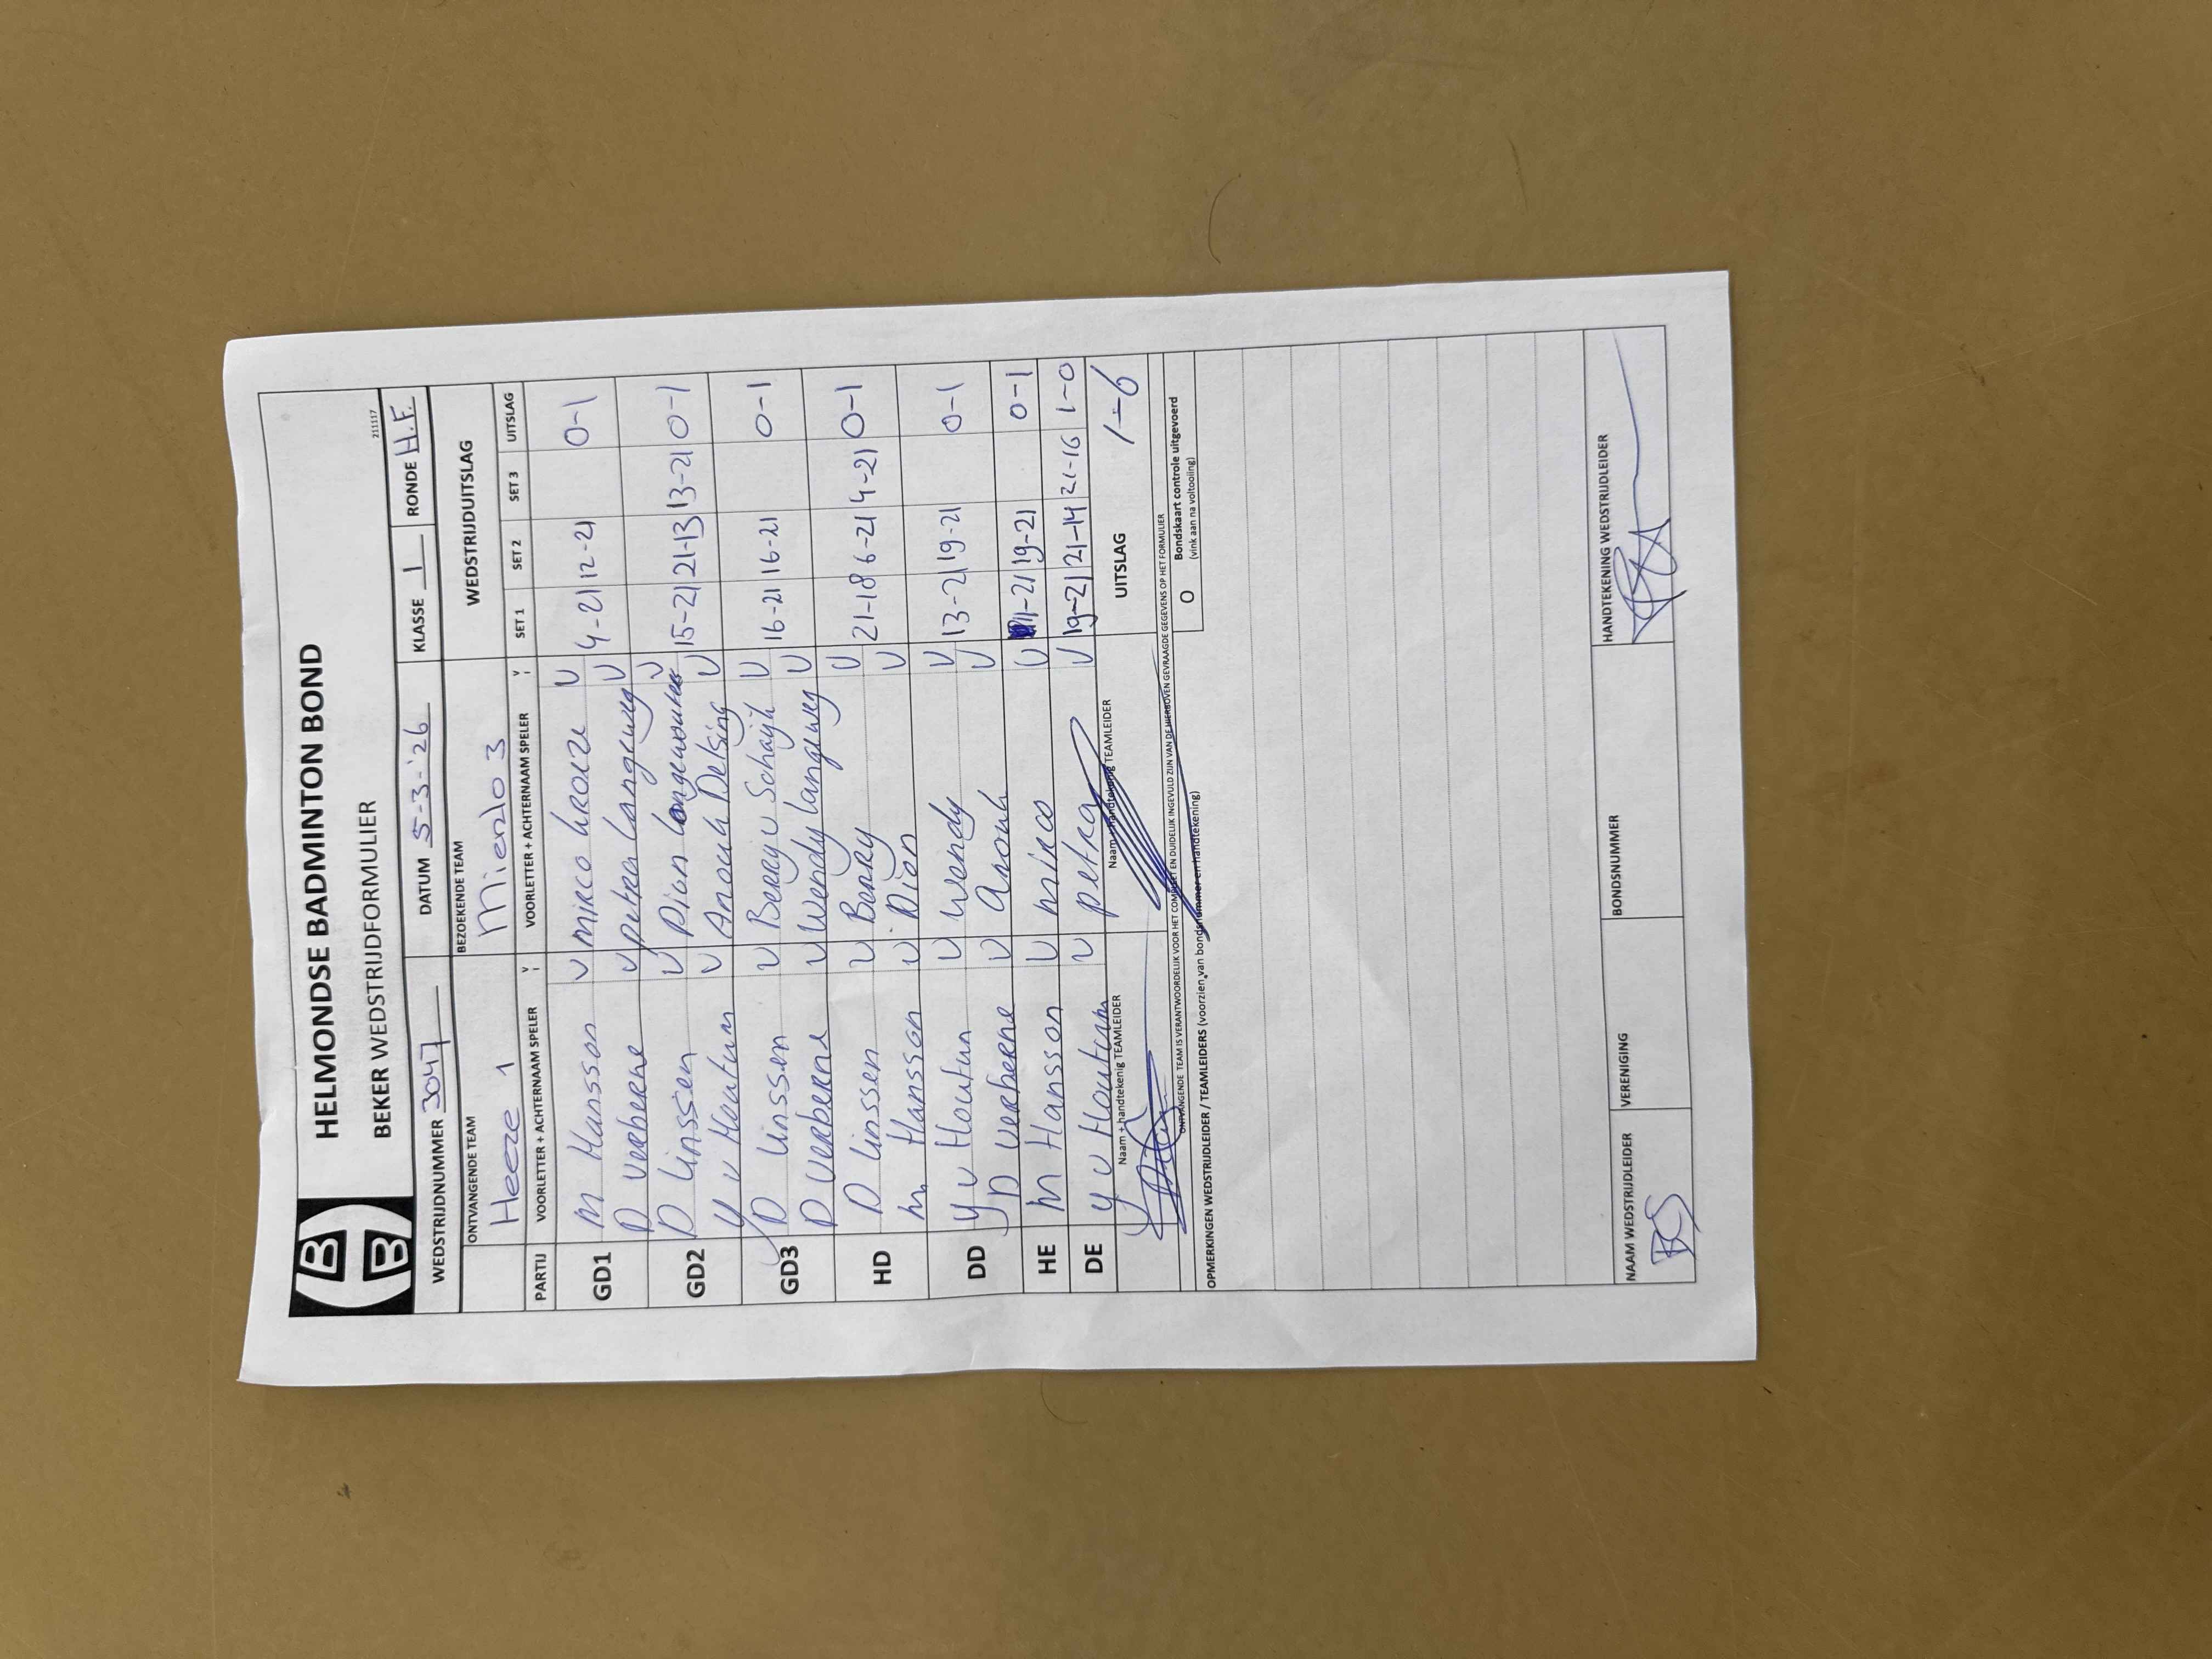 HELMONDSE BADMINTON BOND
BEKER WEDSTRIJDFORMULIER
211117
WEDSTRIJDNUMMER 3047 DATUM 5-3-'26 KLASSE 1 RONDE H.F.
ONTVANGENDE TEAM BEZOEKENDE TEAM WEDSTRIJDUITSLAG
Heeze 1 Mierlo 3
PARTIJ VOORLETTER + ACHTERNAAM SPELER V VOORLETTER + ACHTERNAAM SPELER V SET 1 SET 2 SET 3 UITSLAG
GD1 M Hansson V Mirco Kroeze V 4-21 12-21 0-1
D Verberne V Petra Langeweg V
GD2 D Linssen V Dion V 15-21 21-13 13-21 0-1
Y v Houtum V Anouk Delsing V
GD3 D Linssen V Berry v Schayk V 16-21 16-21 0-1
D Verberne V Wendy Langeweg V
HD D Linssen V Berry V 21-18 6-21 4-21 0-1
M Hansson V Dion V
DD Y v Houtum V Wendy V 13-21 19-21 0-1
D Verberne V Anouk V
HE M Hansson V Mirco V 11-21 19-21 0-1
DE Y v Houtum V Petra V 19-21 21-14 21-16 1-0
Naam + handtekenig TEAMLEIDER Naam + handtekenig TEAMLEIDER UITSLAG 1-6
ONTVANGENDE TEAM IS VERANTWOORDELIJK VOOR HET COMPLEET EN DUIDELIJK INGEVULD ZIJN VAN DE HIERBOVEN GEVRAAGDE GEGEVENS OP HET FORMULIER
O Bondskaart controle uitgevoerd
(vink aan na voltooiing)
OPMERKINGEN WEDSTRIJDLEIDER / TEAMLEIDERS (voorzien van bondsnummer en handtekening)
NAAM WEDSTRIJDLEIDER VERENIGING BONDSNUMMER HANDTEKENING WEDSTRIJDLEIDER